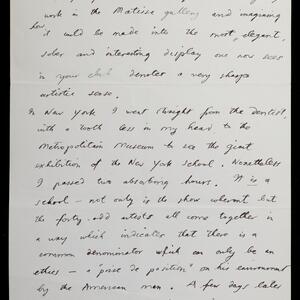 work in the Matisse gallery and imagining
how it could be made into the most elegant,
sober and interesting display one now sees
in your club denotes a very sharp
artistic sense.
In New York I went straight from the dentist,
with a tooth less in my head to the
Metropolitan Museum to see the giant
exhibition of the New York school. Nonetheless
I passed two absorbing hours. It is a
school – not only is the show coherent but
the forty-odd artists all come together in
a way which indicates that there is a
common denominator which can only be an
ethics – a "prise de position" on his environment
by the American man. A few days later